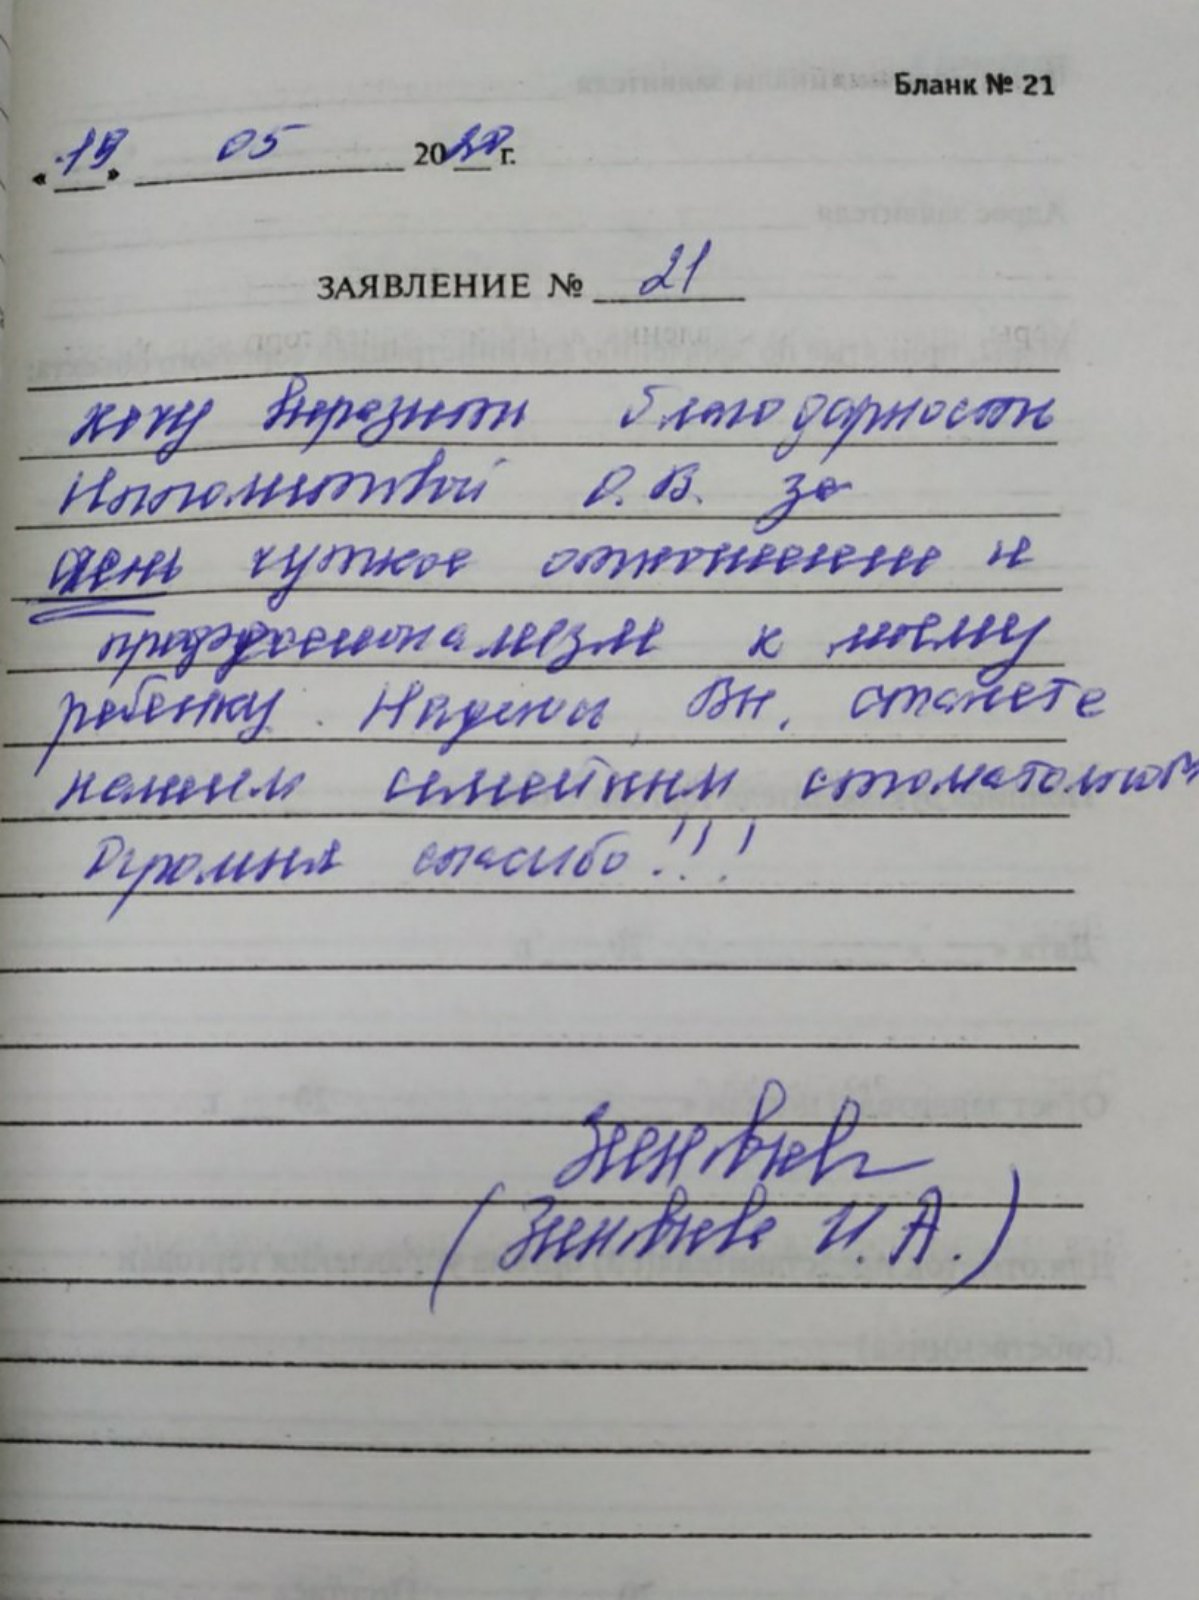 Бланк № 21
«19» 05 2020 г.
ЗАЯВЛЕНИЕ № 21
хочу выразить благодарность
О.В. за
очень чуткое отношение и
профессионализм к моему
ребенку. Надеюсь, Вы, станете
нашим семейным стоматологом
Огромная спасибо!!!
(Зиновьева И.А.)